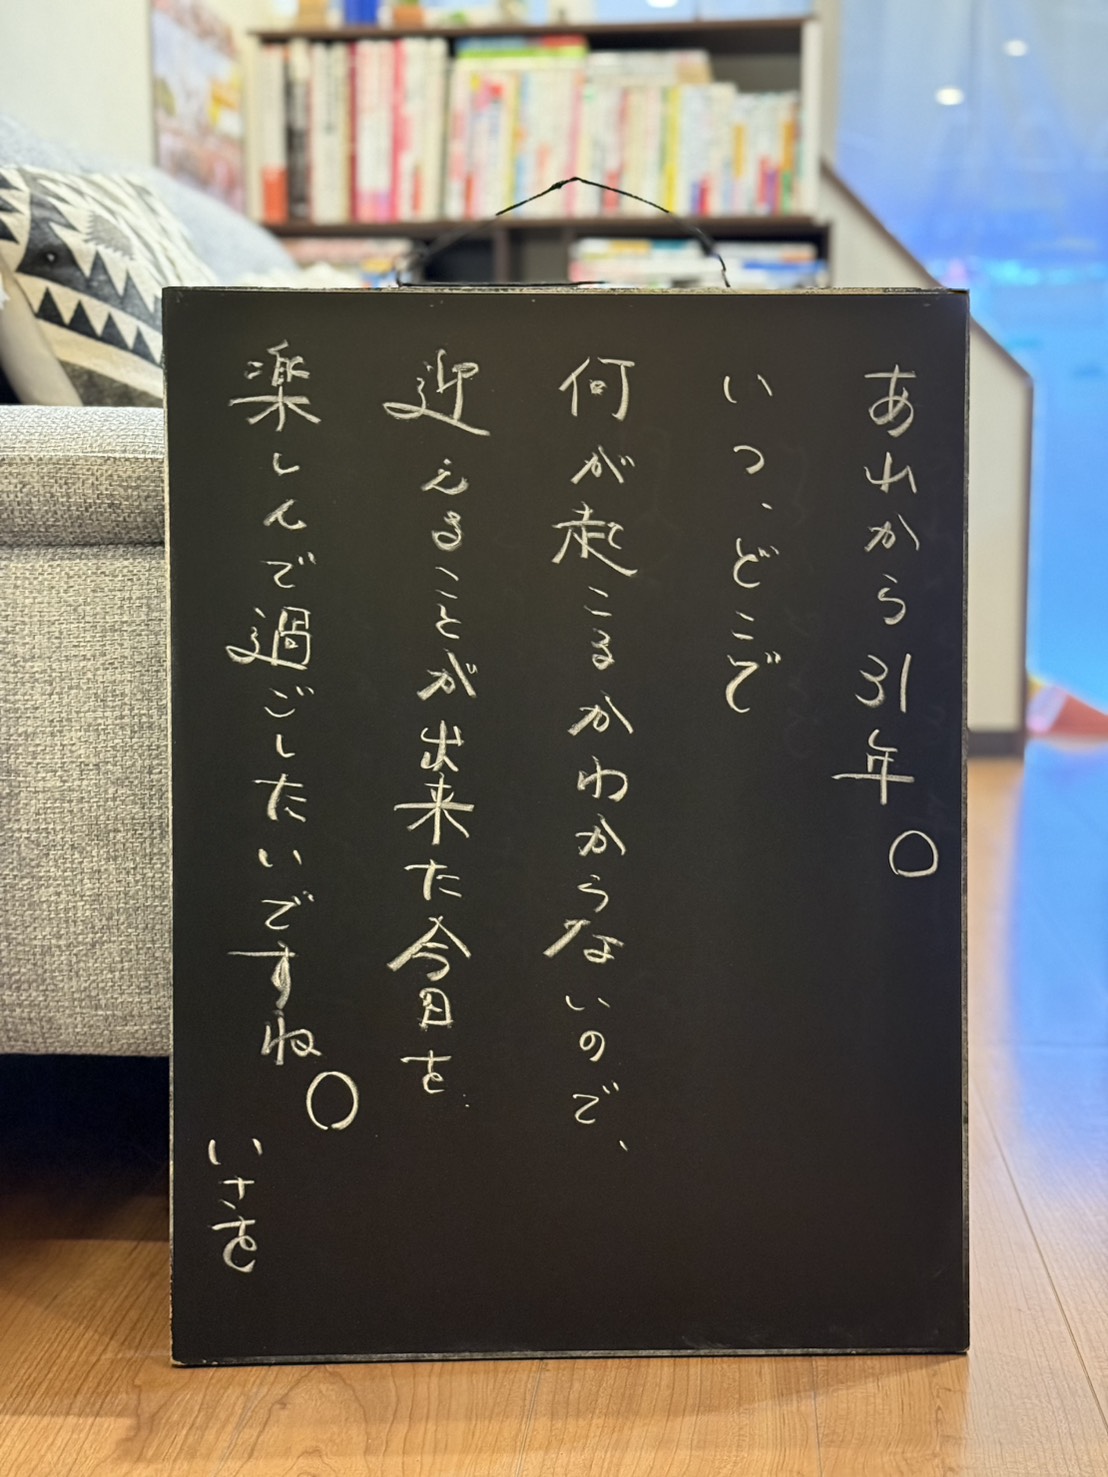 あれから31年。
いつ、どこで
何が起こるかわからないので、
迎えることが出来た今日を
楽しんで過ごしたいですね。
いさを